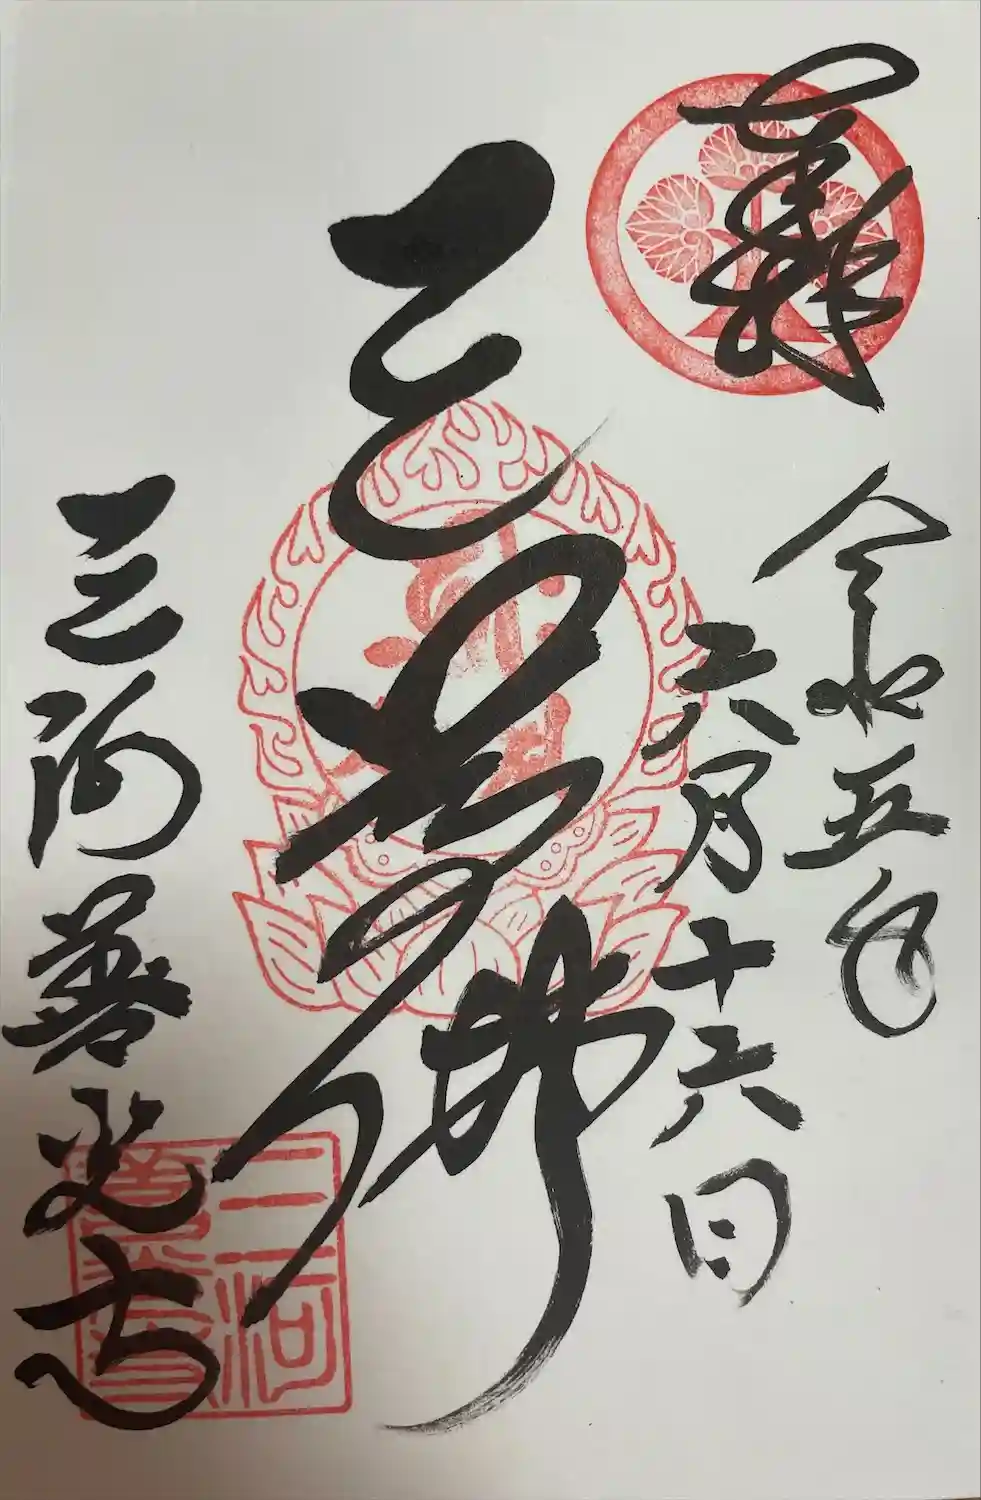 奉拝
令和五年
六月十六日
三尊佛
三河善光寺
三河
善光寺